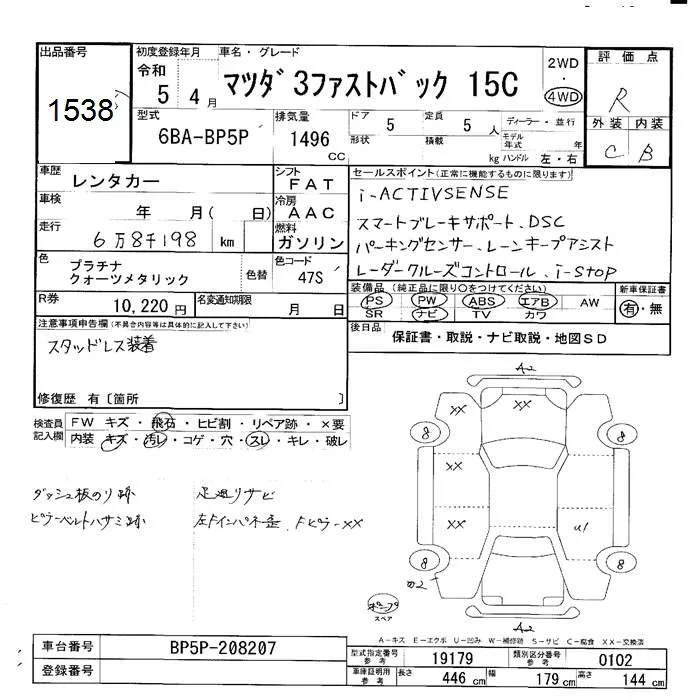 出品番号
1538
初度登録年月 車名・グレード
令和 5 4月 マツダ3ファストバック 15C 2WD・4WD
評価点
R
型式 排気量 ドア 5 定員 5人 ディーラー・並行
6BA-BP5P 1496 cc 形状 積載 kg モデル年式 年 ハンドル 左・右
外装 内装
C B
車歴 レンタカー シフト FAT
車検 年 月(日) 冷房 AAC
走行 6万8千198 km 燃料 ガソリン
色 プラチナクォーツメタリック 色替 色コード 47S
R券 10,220円 名変通知期限 月 日
セールスポイント(正常に機能するものに限ります)
i-ACTIVSENSE
スマートブレーキサポート、DSC
パーキングセンサー、レーンキープアシスト
レーダークルーズコントロール、i-STOP
装備品(純正品に限り〇をつけてください) 新車保証書
PS PW ABS エアB AW 有・無
SR ナビ TV カワ
後日品 保証書・取説・ナビ取説・地図SD
注意事項申告欄(不具合内容等は具体的に記入して下さい)
スタッドレス装着
修復歴 有〔箇所 〕
検査員記入欄 FW キズ・飛石・ヒビ割・リペア跡・×要
内装・キズ・汚レ・コゲ・穴・スレ・キレ・破レ
ダッシュ板のり跡 足廻リサビ
ピラーベルトハサミ跡 左Fインパネ歪、Fピラー××
A2
XX XX
8 8
XX
XX U1
8 8
A2
スペア
A-キズ E-エクボ U-凹み W-補修跡 S-サビ C-腐食 XX-交換済
車台番号 BP5P-208207
登録番号
型式指定番号 参考 19179 類別区分番号 参考 0102
車庫証明用 参考 長さ 446cm 幅 179cm 高さ 144cm